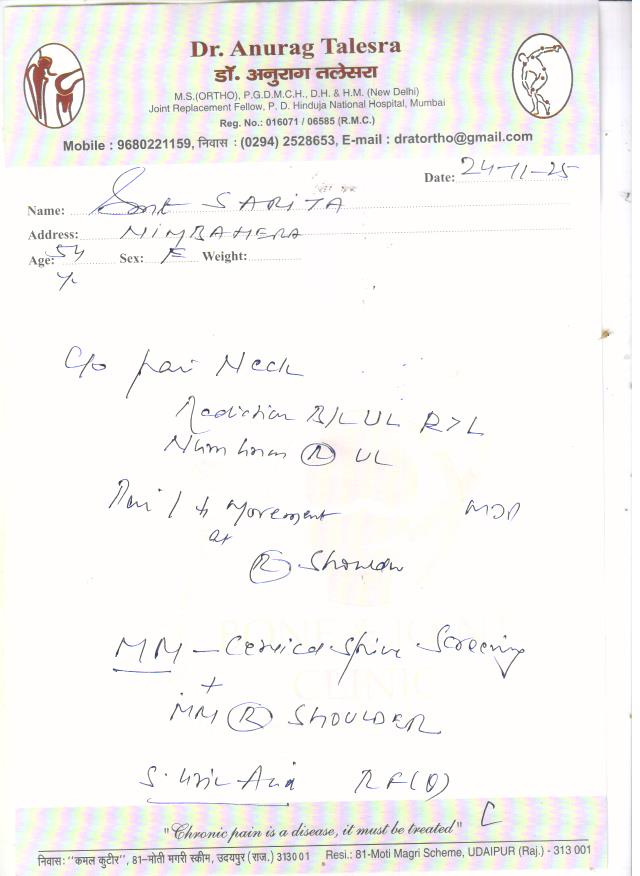 Dr. Anurag Talesra
डॉ. अनुराग तलेसरा
M.S.(ORTHO), P.G.D.M.C.H., D.H. & H.M. (New Delhi)
Joint Replacement Fellow, P. D. Hinduja National Hospital, Mumbai
Reg. No.: 016071 / 06585 (R.M.C.)
Mobile : 9680221159, निवास : (0294) 2528653, E-mail : dratortho@gmail.com
Date: 24-11-25
Name: Smt SARITA
Address: NIMBAHERA
Age: 54 Sex: F Weight:
Yr
C/o Pain Neck
Radiation B/L UL R>L
Numbness (R) UL
Pain Movement
at
(R) Shoulder
- Cervical Spine Screening
+
(R) SHOULDER
S. Uric Acid RF(Q)
BONE & JOINT
CLINIC
"Chronic pain is a disease, it must be treated"
निवास: "कमल कुटीर", 81-मोती मगरी स्कीम, उदयपुर (राज.) 313001 Resi.: 81-Moti Magri Scheme, UDAIPUR (Raj.) - 313 001